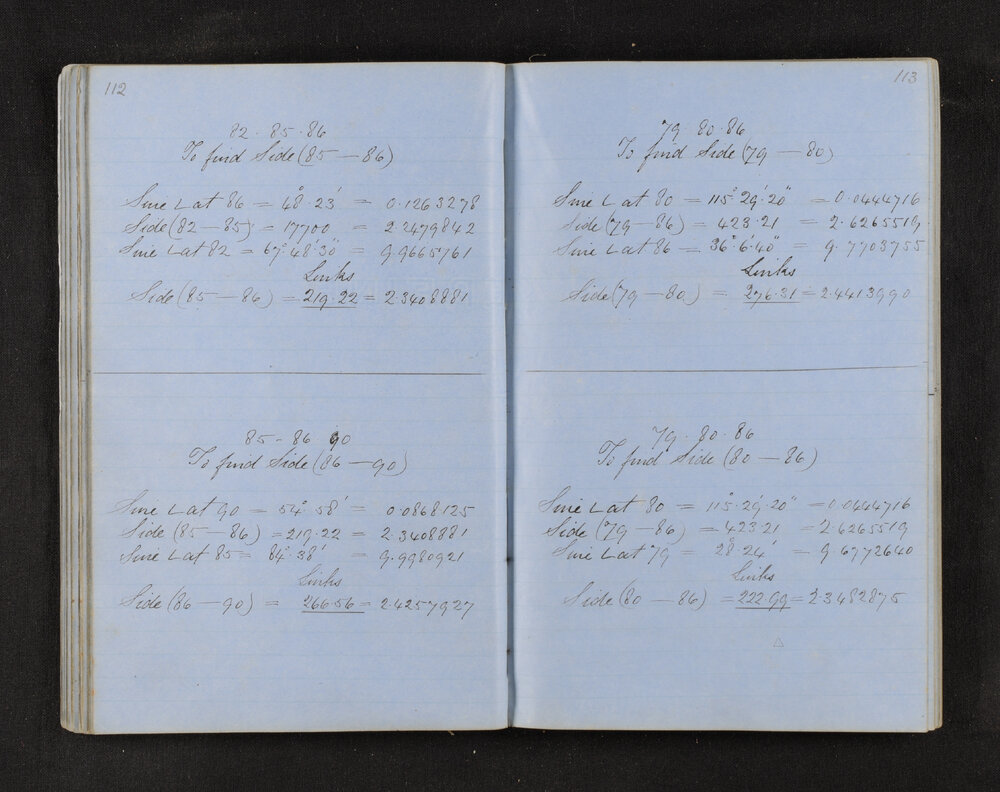 112
82 . 85 . 86
To find Side (85 — 86)
Sine ∠ at 86 = 48°. 23' = 0.1263278
Side (82 — 85) = 177.00 = 2.2479842
Sine ∠ at 82 = 67°. 48'. 30" = 9.9665761
Links
Side (85 — 86) = 219.22 = 2.3408881
85 - 86 90
To find Side (86 — 90)
Sine ∠ at 90 = 54°. 58' = 0.0868125
Side (85 — 86) = 219.22 = 2.3408881
Sine ∠ at 85 = 84°. 38' = 9.9980921
Links
Side (86 — 90) = 266.56 = 2.4257927
113
79 . 80 . 86
To find Side (79 — 80)
Sine ∠ at 80 = 115°. 29'. 20" = 0.0444716
Side (79 — 86) = 423.21 = 2.6265519
Sine ∠ at 86 = 36°. 6'. 40" = 9.7703755
Links
Side (79 — 80) = 276.31 = 2.4413990
79 . 80 . 86
To find Side (80 — 86)
Sine ∠ at 80 = 115°. 29'. 20" = 0.0444716
Side (79 — 86) = 423.21 = 2.6265519
Sine ∠ at 79 = 28°. 24' = 9.6772640
Links
Side (80 — 86) = 222.99 = 2.3482875